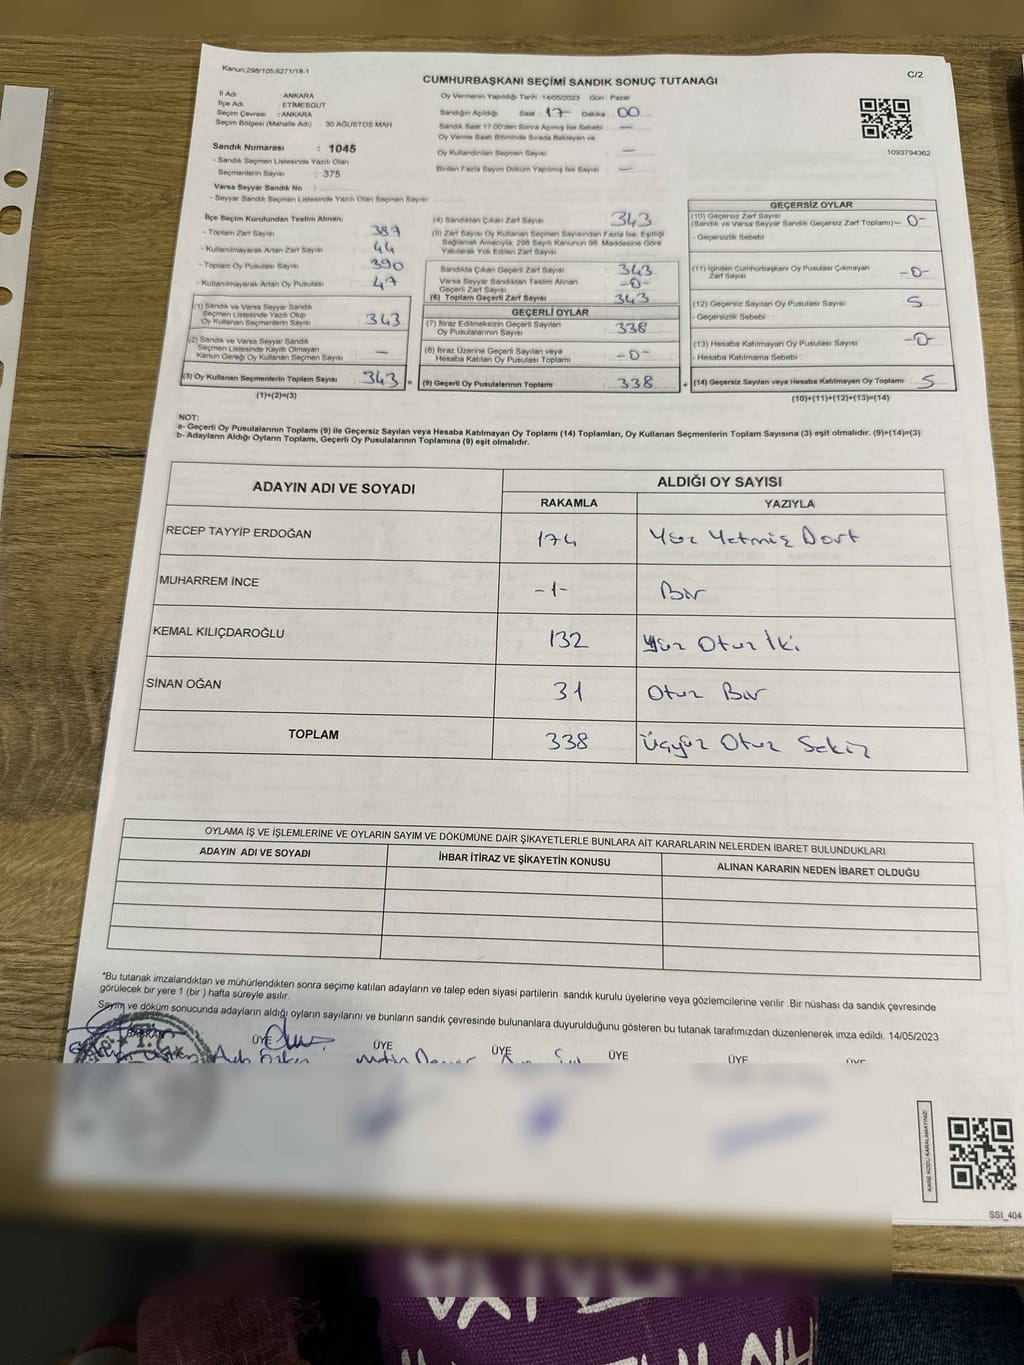 Kanun:298/105;6271/18-1
C/2
CUMHURBAŞKANI SEÇİMİ SANDIK SONUÇ TUTANAĞI
İl Adı : ANKARA
İlçe Adı : ETİMESGUT
Seçim Çevresi : ANKARA
Seçim Bölgesi (Mahalle Adı) : 30 AĞUSTOS MAH
Sandık Numarası : 1045
- Sandık Seçmen Listesinde Yazılı Olan
Seçmenlerin Sayısı : 375
Varsa Seyyar Sandık No :
- Seyyar Sandık Seçmen Listesinde Yazılı Olan Seçmen Sayısı:
Oy Vermenin Yapıldığı Tarih : 14/05/2023 Gün : Pazar
Sandığın Açıldığı Saat : 17 Dakika : 00
Sandık Saat 17:00'den Sonra Açılmış İse Sebebi : —
Oy Verme Saati Bitiminde Sırada Bekleyen ve
Oy Kullandırılan Seçmen Sayısı : —
Birden Fazla Sayım Döküm Yapılmış İse Sayısı : —
1093794362
İlçe Seçim Kurulundan Teslim Alınan;
- Toplam Zarf Sayısı : 387
- Kullanılmayarak Artan Zarf Sayısı : 44
- Toplam Oy Pusulası Sayısı : 390
- Kullanılmayarak Artan Oy Pusulası : 47
(1) Sandık ve Varsa Seyyar Sandık
Seçmen Listesinde Yazılı Olup
Oy Kullanan Seçmenlerin Sayısı : 343
(2) Sandık ve Varsa Seyyar Sandık
Seçmen Listesinde Kayıtlı Olmayan
Kanun Gereği Oy Kullanan Seçmen Sayısı : —
(3) Oy Kullanan Seçmenlerin Toplam Sayısı : 343 =
(1)+(2)=(3)
(4) Sandıktan Çıkan Zarf Sayısı : 343
(5) Zarf Sayısı Oy Kullanan Seçmen Sayısından Fazla İse, Eşitliği
Sağlamak Amacıyla; 298 Sayılı Kanunun 98. Maddesine Göre
Yakılarak Yok Edilen Zarf Sayısı :
Sandıkta Çıkan Geçerli Zarf Sayısı : 343
Varsa Seyyar Sandıktan Teslim Alınan
Geçerli Zarf Sayısı : -0-
(6) Toplam Geçerli Zarf Sayısı : 343
GEÇERLİ OYLAR
(7) İtiraz Edilmeksizin Geçerli Sayılan
Oy Pusulalarının Sayısı : 338
(8) İtiraz Üzerine Geçerli Sayılan veya
Hesaba Katılan Oy Pusulası Toplamı : -0-
(9) Geçerli Oy Pusulalarının Toplamı : 338 +
GEÇERSİZ OYLAR
(10) Geçersiz Zarf Sayısı
(Sandık ve Varsa Seyyar Sandık Geçersiz Zarf Toplamı) -0-
- Geçersizlik Sebebi :
(11) İçinden Cumhurbaşkanı Oy Pusulası Çıkmayan
Zarf Sayısı : -0-
(12) Geçersiz Sayılan Oy Pusulası Sayısı : 5
- Geçersizlik Sebebi :
(13) Hesaba Katılmayan Oy Pusulası Sayısı : -0-
- Hesaba Katılmama Sebebi :
(14) Geçersiz Sayılan veya Hesaba Katılmayan Oy Toplamı : 5
(10)+(11)+(12)+(13)=(14)
NOT:
a- Geçerli Oy Pusulalarının Toplamı (9) ile Geçersiz Sayılan veya Hesaba Katılmayan Oy Toplamı (14) Toplamları, Oy Kullanan Seçmenlerin Toplam Sayısına (3) eşit olmalıdır. (9)+(14)=(3)
b- Adayların Aldığı Oyların Toplamı, Geçerli Oy Pusulalarının Toplamına (9) eşit olmalıdır.
ADAYIN ADI VE SOYADI
ALDIĞI OY SAYISI
RAKAMLA YAZIYLA
RECEP TAYYİP ERDOĞAN 174 Yüz Yetmiş Dört
MUHARREM İNCE -1- Bir
KEMAL KILIÇDAROĞLU 132 Yüz Otuz İki
SİNAN OĞAN 31 Otuz Bir
TOPLAM 338 Üçyüz Otuz Sekiz
OYLAMA İŞ VE İŞLEMLERİNE VE OYLARIN SAYIM VE DÖKÜMÜNE DAİR ŞİKAYETLERLE BUNLARA AİT KARARLARIN NELERDEN İBARET BULUNDUKLARI
ADAYIN ADI VE SOYADI İHBAR İTİRAZ VE ŞİKAYETİN KONUSU ALINAN KARARIN NEDEN İBARET OLDUĞU
*Bu tutanak imzalandıktan ve mühürlendikten sonra seçime katılan adayların ve talep eden siyasi partilerin sandık kurulu üyelerine veya gözlemcilerine verilir .Bir nüshası da sandık çevresinde
görülecek bir yere 1 (bir ) hafta süreyle asılır.
Sayım ve döküm sonucunda adayların aldığı oyların sayılarını ve bunların sandık çevresinde bulunanlara duyurulduğunu gösteren bu tutanak tarafımızdan düzenlenerek imza edildi. 14/05/2023
BAŞKAN ÜYE ÜYE ÜYE ÜYE ÜYE ÜYE
T.C.
KARE KODU KARALAMAYINIZ!
SSI_404